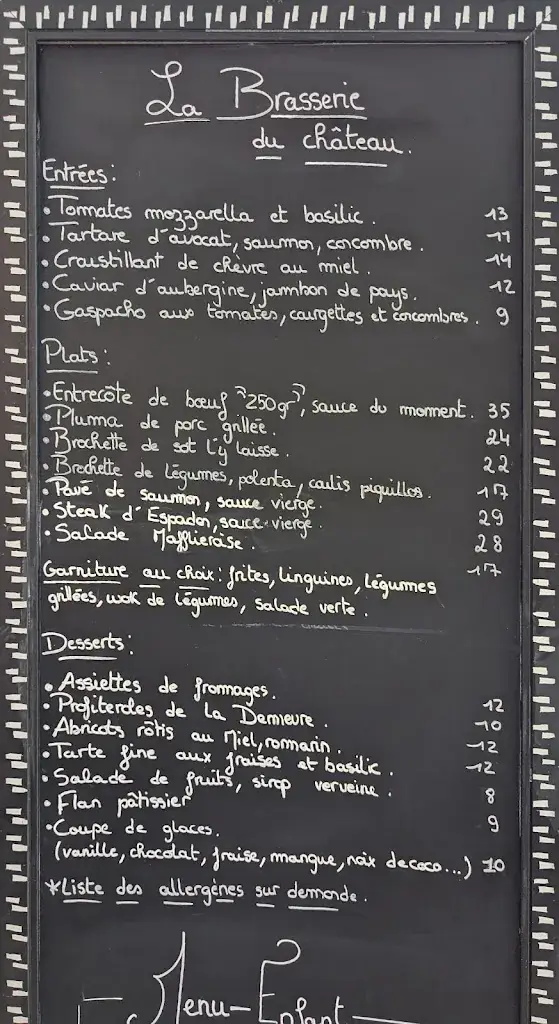 La Brasserie
du château.
Entrées:
• Tomates mozzarella et basilic. 13
• Tartare d'avocat, saumon, concombre. 11
• Croustillant de chèvre au miel. 14
• Caviar d'aubergine, jambon de pays. 12
• Gaspacho aux tomates, courgettes et concombres. 9
Plats:
• Entrecôte de bœuf "250gr", sauce du moment. 35
• Pluma de porc grillée. 24
• Brochette de sot l'y laisse. 22
• Brochette de légumes, polenta, coulis piquillos. 17
• Pavé de saumon, sauce vierge. 29
• Steak d'Espadon, sauce vierge. 28
• Salade Mafflieraise. 17
Garniture au choix: frites, linguines, légumes
grillées, wok de légumes, salade verte.
Desserts:
• Assiettes de fromages. 12
• Profiteroles de La Demeure. 10
• Abricots rôtis au Miel, romarin. 12
• Tarte fine aux fraises et basilic. 12
• Salade de fruits, sirop verveine. 8
• Flan pâtissier 9
• Coupe de glaces.
(vanille, chocolat, fraise, mangue, noix de coco...) 10
*Liste des allergènes sur demande.
Menu-Enfant